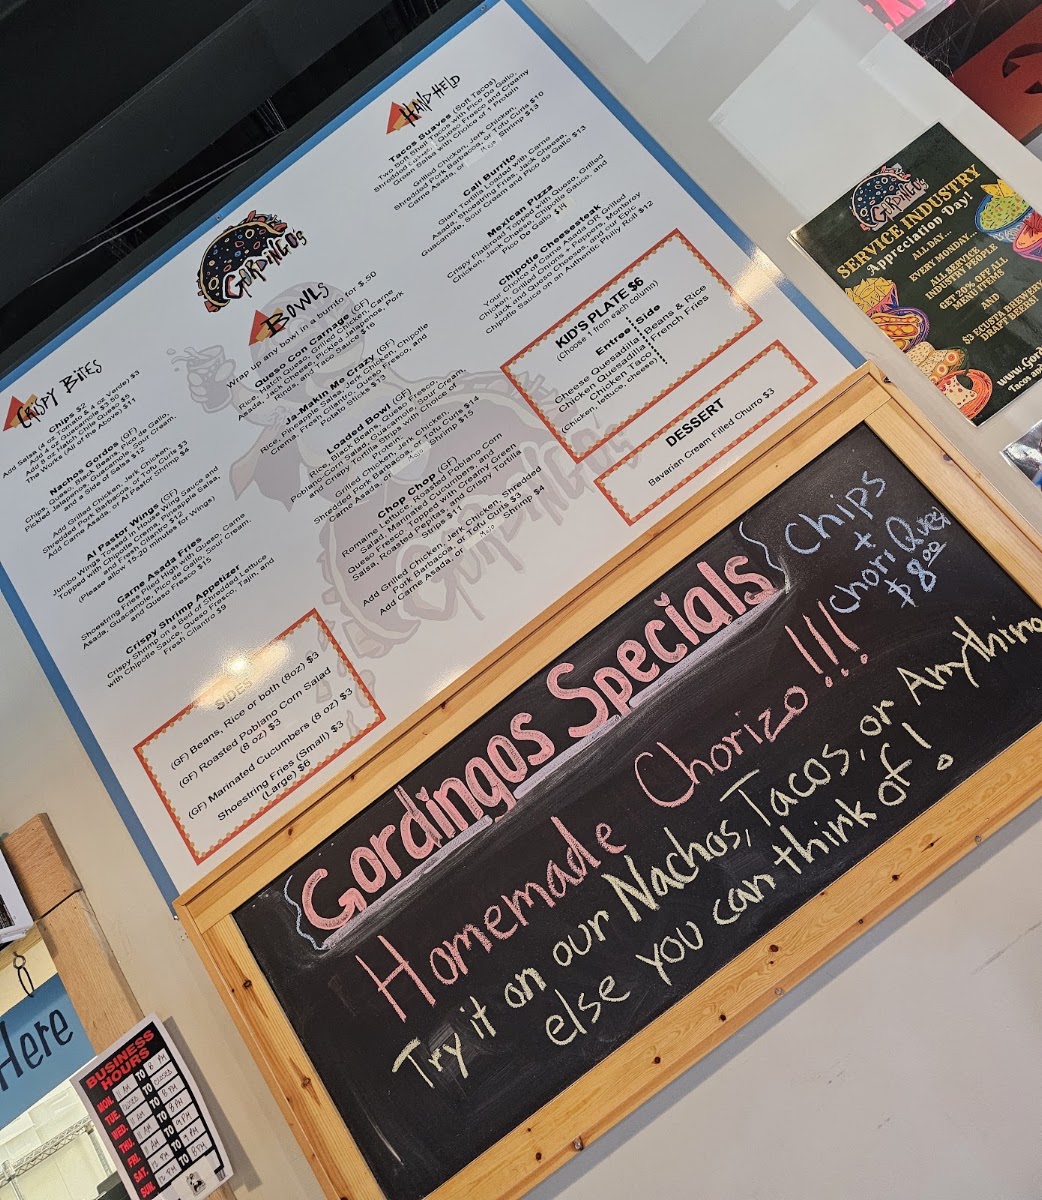 CRISPY BITES
Chips $2
Add Salsa (4 oz Tomato & 4 oz Verde) $3
Add 4 oz Guacamole $3.50
Add 8 oz Hatch Chile Queso $7
The Works (All of the Above) $11
Nachos Gordos (GF)
Chips, Queso, Black Beans, Pico de Gallo,
Pickled Jalapenos, Guacamole, Sour Cream,
Side of Salsa $12
Add Grilled Chicken, Jerk Chicken,
Shredded Pork Barbacoa, or Tofu Curls $3
Add Carne Asada, or Al Pastor Shrimp $4
Al Pastor Wings (GF)
Jumbo Wings Tossed in House Wing Sauce and
Topped with Chipotle Lime Sauce, Pineapple Salsa,
and Fresh Cilantro $12
(Please allow 15-20 minutes for Wings)
Carne Asada Fries
Shoestring Fries Piled High with Queso, Carne
Asada, Guacamole, Pico de Gallo, Sour Cream,
and Queso Fresco $15
Crispy Shrimp Appetizer
Crispy Shrimp on a Bed of Shredded Lettuce
with Chipotle Sauce, Queso Fresco, Tajin, and
Fresh Cilantro $9
SIDES
(GF) Beans, Rice or both (8oz) $3
(GF) Roasted Poblano Corn Salad
(8 oz) $3
(GF) Marinated Cucumbers (8 oz) $3
Shoestring Fries (Small) $3
(Large) $6
GORDINGO'S
BOWLS
Wrap up any bowl in a burrito for $.50
Queso Con Carnage (GF)
Rice, Hatch Queso, Grilled Chicken, Carne
Asada, Jack Cheese, Pickled Jalapenos, Pork
Rinds, and Taco Sauce $16
Ja-Makin Me Crazy (GF)
Rice, Pineapple Salsa, Jerk Chicken, Chipotle
Crema, Fresh Cilantro, Queso Fresco, and
Potato Sticks $13
Loaded Bowl (GF)
Rice, Black Beans, Queso Fresco,
Poblano-Corn Salad, Guacamole, Sour Cream,
and Crispy Tortilla Strips with Choice of
Salsa $11
Grilled Chicken, Jerk Chicken,
Shredded Pork Barbacoa, or Tofu Curls $14
Carne Asada, or Shrimp $15
Chop Chop (GF)
Romaine Lettuce, Roasted Poblano Corn
Salad, Marinated Cucumbers, and
Queso Fresco Topped with Creamy Green
Salsa, Roasted Pepitas, and Crispy Tortilla
Strips $11
Add Grilled Chicken, Jerk Chicken, Shredded
Pork Barbacoa, or Tofu Curls $3
Add Carne Asada, or Shrimp $4
HAND HELD
Tacos Suaves (Soft Tacos)
Two Soft Shell Tacos with Pico De Gallo,
Shredded Queso Fresco and Creamy
Green Salsa with Choice of 1 Protein
Grilled Chicken, Jerk Chicken,
Shredded Pork Barbacoa, or Tofu Curls $10
Carne Asada, or Shrimp $13
Cali Burrito
Giant Tortilla Loaded with Carne
Asada, Shoestring Fries, Jack Cheese,
Guacamole, Sour Cream and Pico de Gallo $13
Mexican Pizza
Crispy Flatbread Topped with Queso, Grilled
Chicken, Jack Cheese, Chipotle Sauce, and
Pico De Gallo $14
Chipotle Cheesesteak
Your Choice of Carne Asada OR Grilled
Chicken, Grilled Onions + Peppers, Monterey
Jack and Queso Cheeses, and our Epic
Chipotle Sauce on an Authentic Philly Roll $12
KID'S PLATE $6
(Choose 1 from each column)
Entree Side
Cheese Quesadilla Beans & Rice
Chicken Quesadilla French Fries
Chicken Taco
(Chicken, lettuce, cheese)
DESSERT
Bavarian Cream Filled Churro $3
GORDINGO'S
Gordingos Specials
Chips
+
Chori Queso
$8.00
Homemade Chorizo!!!
Try it on our Nachos, Tacos, or Anything
else you can think of!
GORDINGO'S
SERVICE INDUSTRY
Appreciation Day!
ALL DAY...
EVERY MONDAY...
ALL SERVICE
INDUSTRY PEOPLE
GET 20% OFF ALL
MENU ITEMS
AND
$3 ECUSTA BREWERY
DRAFT BEERS!
www.Gord
Tacos and
Here
BUSINESS
HOURS
MON. 11 AM TO 8 PM
TUE. CLOSED TO CLOSED
WED. 11 AM TO 8 PM
THU. 11 AM TO 8 PM
FRI. 11 AM TO 9 PM
SAT. 12 PM TO 9 PM
SUN. 12 PM TO 8 PM